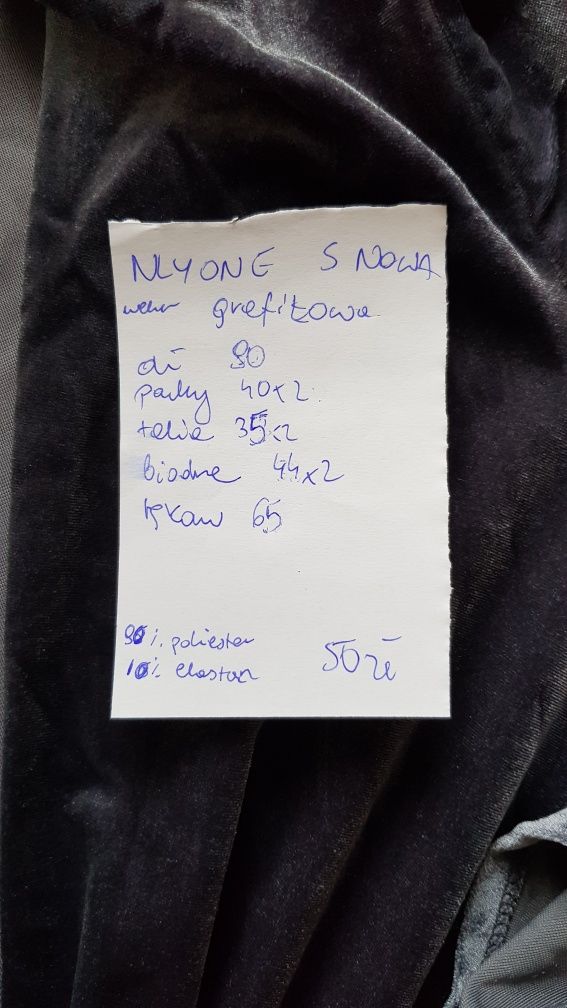 NLYONE S NOWA
welur grafitowa
dł 90
pachy 40x2
talia 35x2
biodra 44x2
rękaw 65
90% poliester
10% elastan
50 zł